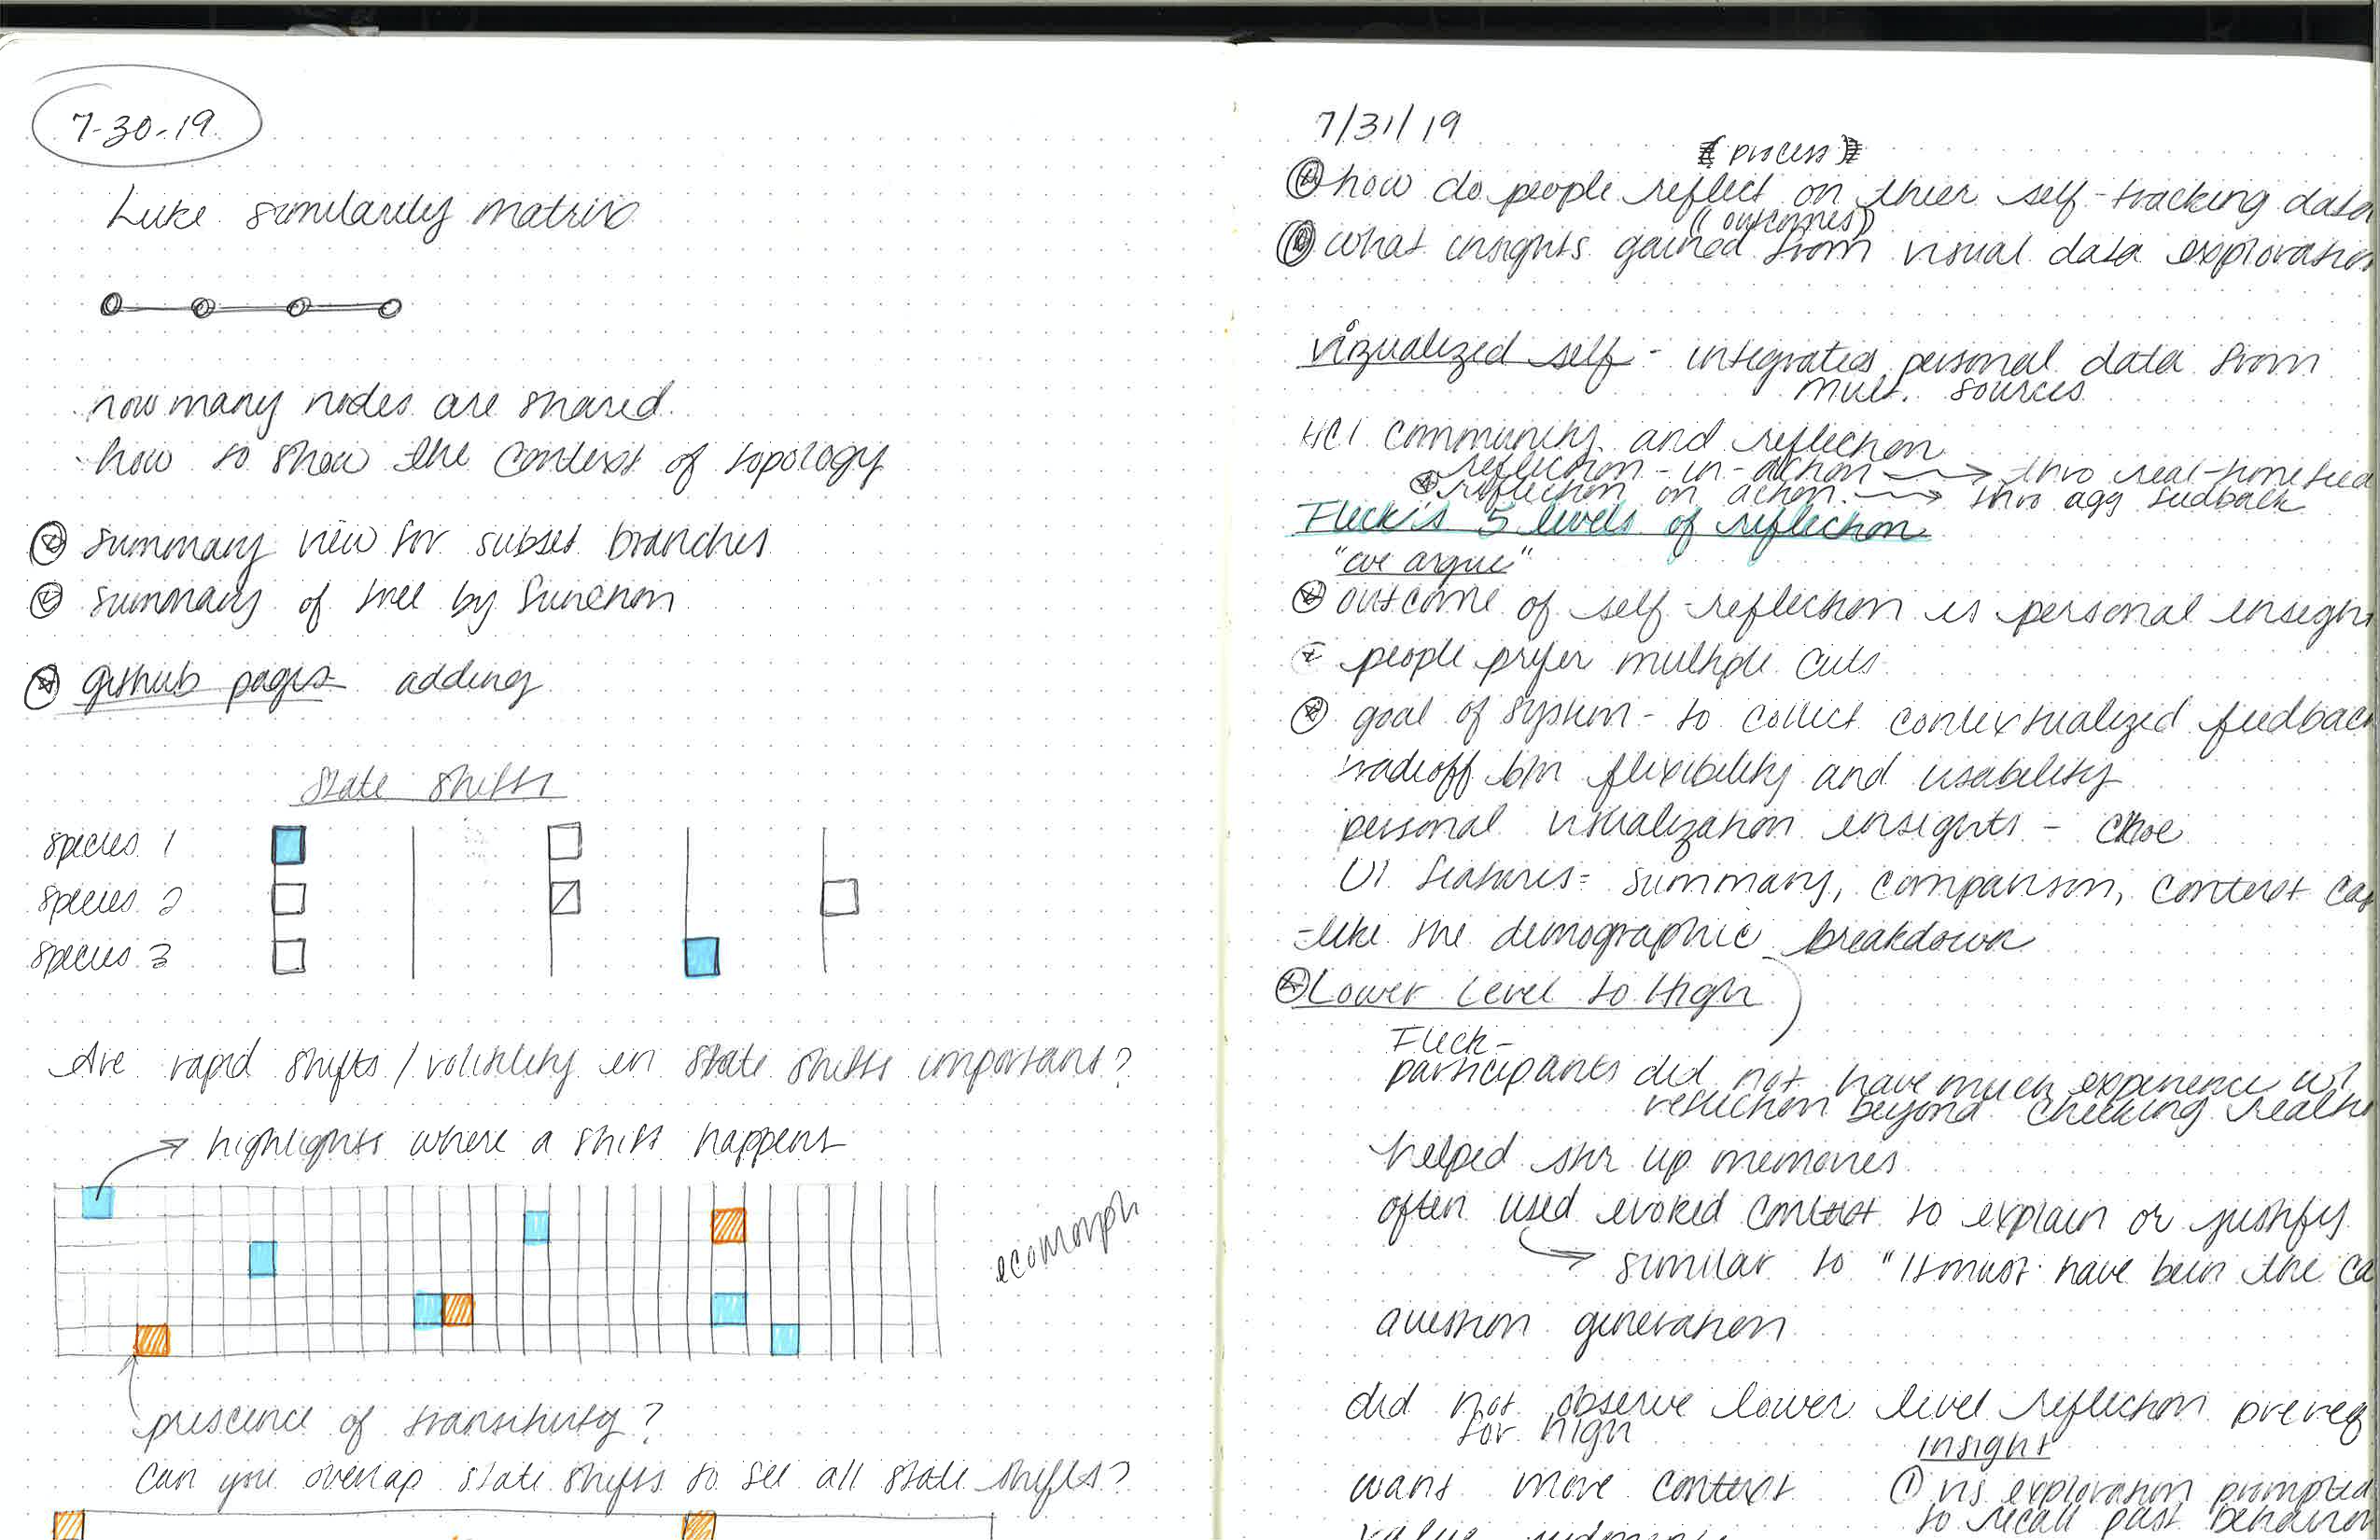 7-30-19
Luke similarity matrix
how many nodes are shared
how to show the context of topology
summary view for subset branches
summary of tree by function
github pages adding
State Shifts
species 1
species 2
species 3
Are rapid shifts / volitility in state shifts important?
highlights where a shift happens
ecomorph
prescence of transitivity?
can you overlap state shifts to see all state shifts?
7/31/19
(process)
how do people reflect on thier self-tracking data
(outcomes)
what insights gained from visual data exploration
vizualized self - integrates personal data from
mult. sources
HCI community and reflection
reflection-in-action → thro real-time feed
reflection on action → thro agg feedback
Fleck's 5 levels of reflection
"we argue"
outcome of self-reflection is personal insigh
people prefer multiple cuts
goal of system - to collect contextualized feedbac
tradeoff btn flexibility and usability
personal visualization insights - Choe
UI features: summary, comparison, context cap
-like the demographic breakdown
Lower Level to High
Fleck-
participants did not have much experience w/
reflection beyond checking realti
helped stir up memories
often used evoked context to explain or justify
similar to "It must have been the ca
question generation
did not observe lower level reflection prereq
for high
insight
want more context
① vis exploration prompted
to recall past behavior